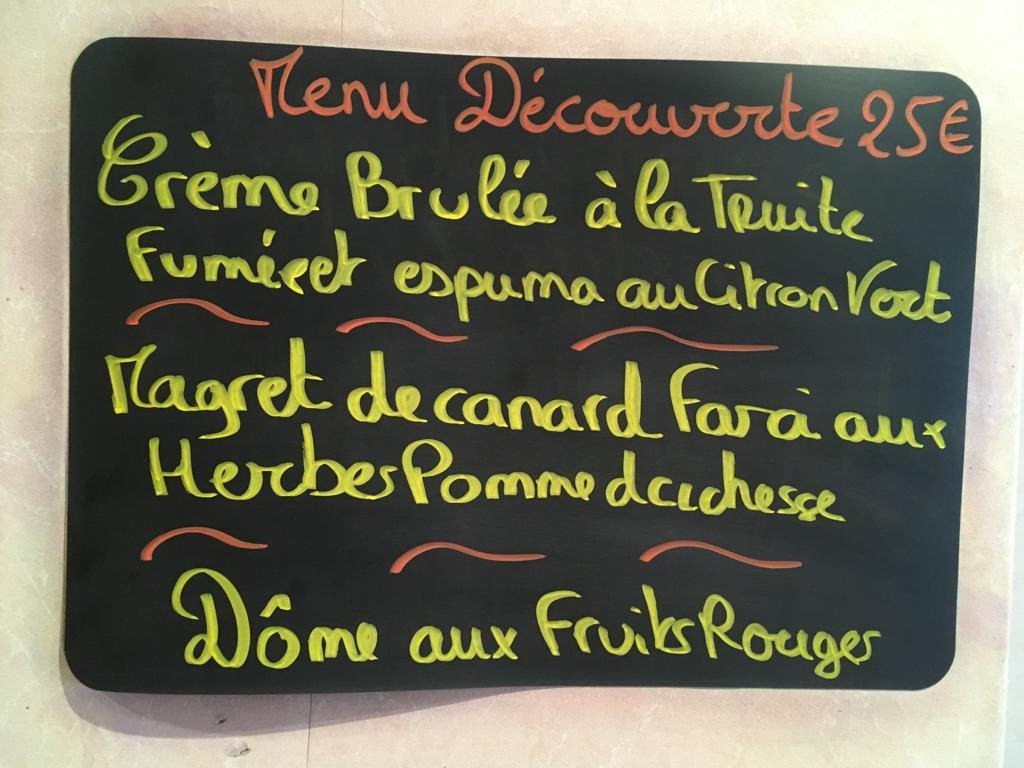 Menu Découverte 25€
Crème Brulée à la Truite
Fumée et espuma au Citron Vert
Magret de canard Farci aux
Herbes Pomme duchesse
Dôme aux Fruits Rouges